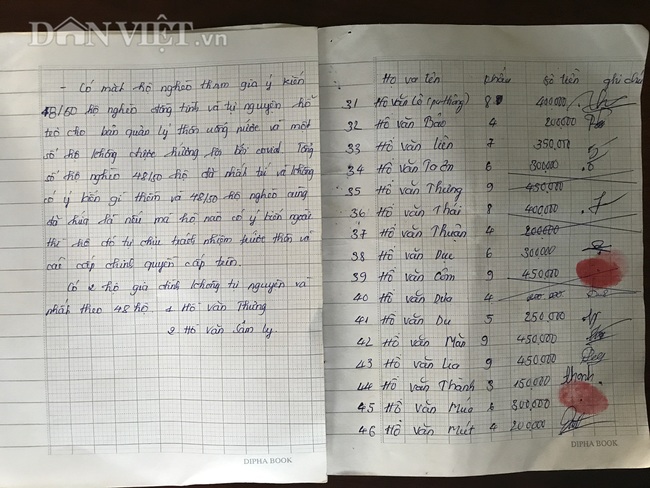 DÂNVIỆT.vn
- Có mặt hộ nghèo tham gia ý kiến
48/50 hộ nghèo đồng tình và tự nguyện hỗ
trợ cho ban quản lý thôn uống nước và một
số hộ không được hưởng lợi bởi covid. Tổng
số hộ nghèo 48/50 hộ đã nhất trí và không
có ý kiến gì thêm và 48/50 hộ nghèo cũng
đã hứa là nếu mà hộ nào có ý kiến ngoài
thì hộ đó tự chịu trách nhiệm trước thôn và
các cấp chính quyền cấp trên.
Có 2 hộ gia đình không tự nguyện và
nhất theo 48 hộ. 1 Hồ Văn Thừng
2 Hồ Văn Sâm Ly
DIPHA BOOK
Họ va tên khẩu số tiền ghi chú
31 Hồ Văn Lô 8 400,000
32 Hồ Văn Bảo 4 200,000
33 Hồ Văn Liên 7 350,000
34 Hồ Văn 6 300000
35 Hồ Văn Thừng 9 450,000
36 Hồ Văn Thái 8 400,000
37 Hồ Văn Thuận 4 200000
38 Hồ Văn Dục 6 300,000
39 Hồ Văn Côm 9 450,000
40 Hồ Văn Dưa 4
41 Hồ Văn Du 5 250,000
42 Hồ Văn Mão 9 450,000
43 Hồ Văn Lia 9 450,000
44 Hồ Văn Thanh 3 150,000 Thanh
45 Hồ Văn Múa 300,000
46 Hồ Văn Mút 4 200,000
DIPHA BOOK